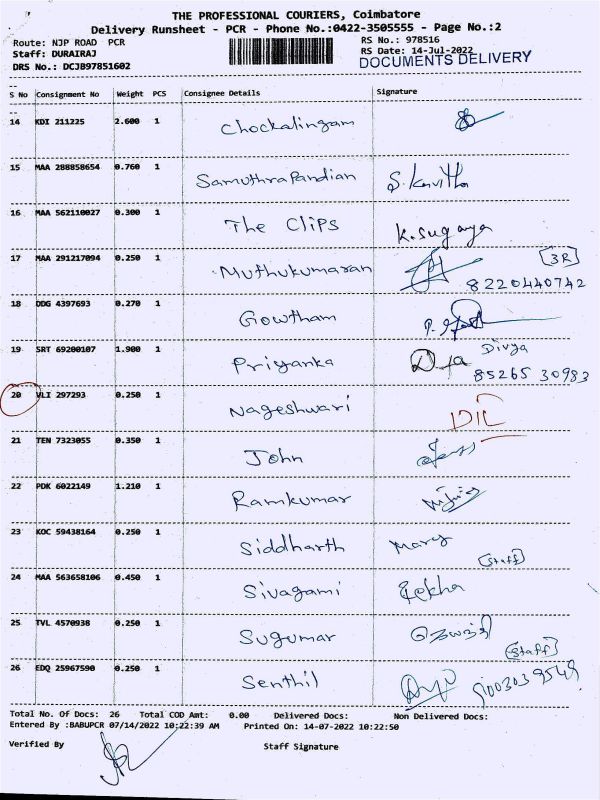 THE PROFESSIONAL COURIERS, Coimbatore
Delivery Runsheet - PCR - Phone No.:0422-3505555 - Page No.:2
Route: NJP ROAD PCR RS No.: 978516
Staff: DURAIRAJ RS Date: 14-Jul-2022
DRS No.: DCJB97851602 DOCUMENTS DELIVERY
S No Consignment No Weight PCS Consignee Details Signature
14 KDI 211225 2.600 1 Chockalingam
15 MAA 288858654 0.760 1 Samuthra Pandian S. Kavitha
16 MAA 562110027 0.300 1 The Clips K. Suganya
17 MAA 291217094 0.250 1 Muthukumaran [3R]
8220440742
18 DDG 4397693 0.270 1 Gowtham
19 SRT 69200107 1.900 1 Priyanka Divya
85265 30983
20 VLI 297293 0.250 1 Nageshwari D/L
21 TEN 7323055 0.350 1 John
22 PDK 6022149 1.210 1 Ramkumar
23 KOC 59438164 0.250 1 Siddharth Mary
[Staff]
24 MAA 563658106 0.450 1 Sivagami Rekha
25 TVL 4570938 0.250 1 Sugumar
[Staff]
26 EDQ 25967590 0.250 1 Senthil
Total No. Of Docs: 26 Total COD Amt: 0.00 Delivered Docs: Non Delivered Docs:
Entered By :BABUPCR 07/14/2022 10:22:39 AM Printed On: 14-07-2022 10:22:50
Verified By Staff Signature